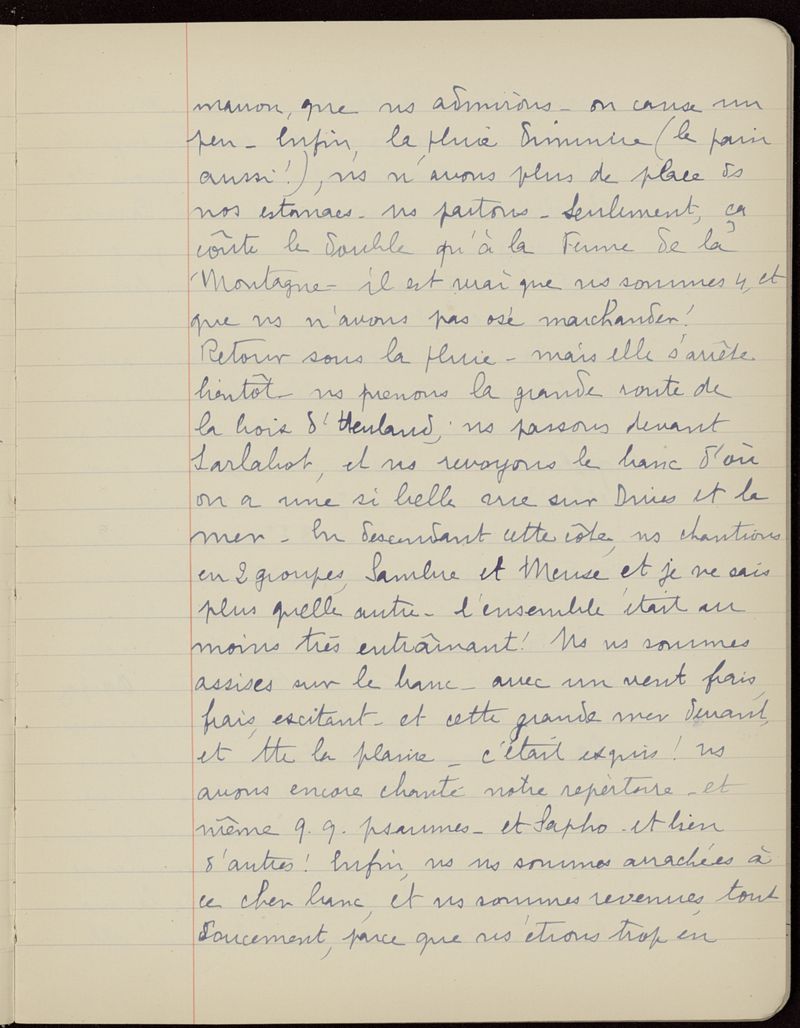 marron, que ns admirons – on cause un
peu – Enfin, la pluie diminue (le pain
aussi !), ns n'avons plus de place ds
nos estomacs – ns partons – Seulement, ça
coûte le double qu'à la Ferme de la
Montagne – il est vrai que ns sommes 4, et
que ns n'avons pas osé marchander !
Retour sous la pluie – mais elle s'arrête
bientôt – ns prenons la grande route de
la croix d'Heuland, ns passons devant
Sarlabot, et ns revoyons le banc d'où
on a une si belle vue sur Dives et la
mer – En descendant cette côte, ns chantions
en 2 groupes, Sambre et Meuse et je ne sais
plus quelle autre – l'ensemble était au
moins très entraînant ! Ns ns sommes
assises sur le banc – avec un vent frais,
frais, excitant – et cette grande mer devant,
et tte la plaine – c'était exquis ! ns
avons encore chanté notre répertoire – et
même q.q. psaumes – et Sapho – et bien
d'autres ! Enfin, ns ns sommes arrachées à
ce cher banc, et ns sommes revenues tout
doucement, parce que ns étions trop en